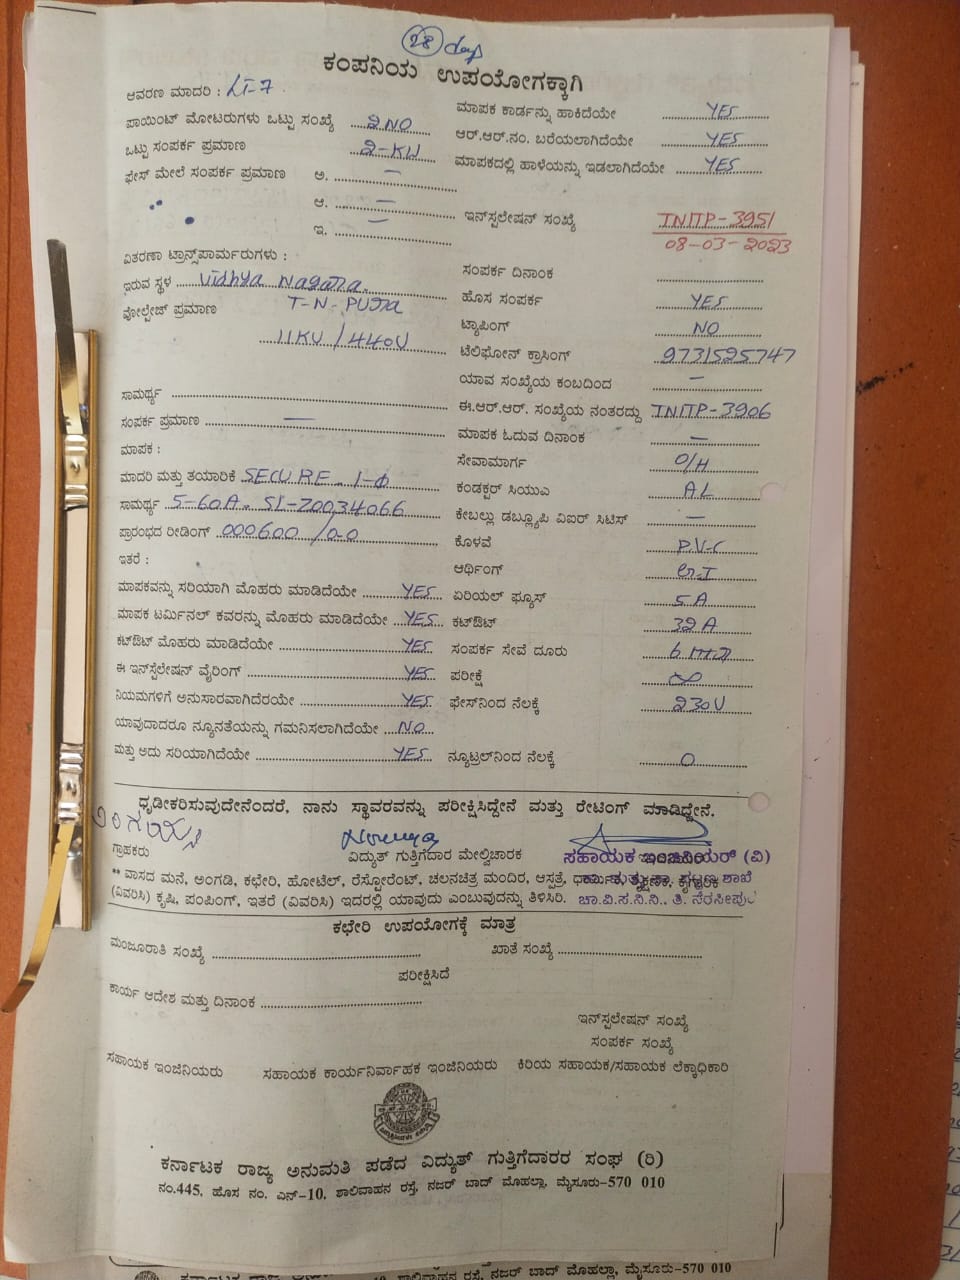 28 days
ಕಂಪನಿಯ ಉಪಯೋಗಕ್ಕಾಗಿ
ಆವರಣ ಮಾದರಿ : LT-7.
ಪಾಯಿಂಟ್ ಮೋಟರುಗಳು ಒಟ್ಟು ಸಂಖ್ಯೆ 2 NO
ಒಟ್ಟು ಸಂಪರ್ಕ ಪ್ರಮಾಣ 2-KW
ಫೇಸ್ ಮೇಲೆ ಸಂಪರ್ಕ ಪ್ರಮಾಣ ಅ. —
ಆ. —
ಇ. —
ವಿತರಣಾ ಟ್ರಾನ್ಸ್‌ಪಾರ್ಮರುಗಳು :
ಇರುವ ಸ್ಥಳ Vidhya Nagara.
ವೋಲ್ಟೇಜ್ ಪ್ರಮಾಣ T-N-PURA
11KV / 440V
ಸಾಮರ್ಥ್ಯ
ಸಂಪರ್ಕ ಪ್ರಮಾಣ —
ಮಾಪಕ :
ಮಾದರಿ ಮತ್ತು ತಯಾರಿಕೆ SECURE. 1-Φ
ಸಾಮರ್ಥ್ಯ 5-60A. SL-Z0034066
ಪ್ರಾರಂಭದ ರೀಡಿಂಗ್ 000600 / 0-0
ಇತರೆ :
ಮಾಪಕವನ್ನು ಸರಿಯಾಗಿ ಮೊಹರು ಮಾಡಿದೆಯೇ YES
ಮಾಪಕ ಟರ್ಮಿನಲ್ ಕವರನ್ನು ಮೊಹರು ಮಾಡಿದೆಯೇ YES
ಕಟ್‌ಔಟ್ ಮೊಹರು ಮಾಡಿದೆಯೇ YES
ಈ ಇನ್‌ಸ್ಟಲೇಷನ್ ವೈರಿಂಗ್ YES
ನಿಯಮಗಳಿಗೆ ಅನುಸಾರವಾಗಿದೆರಯೇ YES
ಯಾವುದಾದರೂ ನ್ಯೂನತೆಯನ್ನು ಗಮನಿಸಲಾಗಿದೆಯೇ NO
ಮತ್ತು ಅದು ಸರಿಯಾಗಿದೆಯೇ YES
ಮಾಪಕ ಕಾರ್ಡನ್ನು ಹಾಕಿದೆಯೇ YES
ಆರ್.ಆರ್.ನಂ. ಬರೆಯಲಾಗಿದೆಯೇ YES
ಮಾಪಕದಲ್ಲಿ ಹಾಳೆಯನ್ನು ಇಡಲಾಗಿದೆಯೇ YES
ಇನ್‌ಸ್ಪಲೇಷನ್ ಸಂಖ್ಯೆ TNITP-3951
08-03-2023
ಸಂಪರ್ಕ ದಿನಾಂಕ
ಹೊಸ ಸಂಪರ್ಕ YES
ಟ್ಯಾಪಿಂಗ್ NO
ಟೆಲಿಫೋನ್ ಕ್ರಾಸಿಂಗ್ 9731595747
ಯಾವ ಸಂಖ್ಯೆಯ ಕಂಬದಿಂದ —
ಈ.ಆರ್.ಆರ್. ಸಂಖ್ಯೆಯ ನಂತರದ್ದು TNITP-3906
ಮಾಪಕ ಓದುವ ದಿನಾಂಕ —
ಸೇವಾಮಾರ್ಗ O/H
ಕಂಡಕ್ಟರ್ ಸಿಯುಎ AL
ಕೇಬಲ್ಲು ಡಬ್ಲ್ಯೂಪಿ ವಿಐರ್ ಸಿಟಿಸ್ —
ಕೊಳವೆ P.V-C
ಆರ್ಥಿಂಗ್ G-I
ಏರಿಯಲ್ ಫ್ಯೂಸ್ 5 A
ಕಟ್‌ಔಟ್ 32 A
ಸಂಪರ್ಕ ಸೇವೆ ದೂರು
ಪರೀಕ್ಷೆ
ಫೇಸ್‌ನಿಂದ ನೆಲಕ್ಕೆ 230V
ನ್ಯೂಟ್ರಲ್‌ನಿಂದ ನೆಲಕ್ಕೆ 0
ಧೃಡೀಕರಿಸುವುದೇನೆಂದರೆ, ನಾನು ಸ್ಥಾವರವನ್ನು ಪರೀಕ್ಷಿಸಿದ್ದೇನೆ ಮತ್ತು ರೇಟಿಂಗ್ ಮಾಡಿದ್ದೇನೆ.
ಗ್ರಾಹಕರು
ವಿದ್ಯುತ್ ಗುತ್ತಿಗೆದಾರ ಮೇಲ್ವಿಚಾರಕ
ಸಹಾಯಕ ಇಂಜಿನಿಯರ್ (ವಿ)
** ವಾಸದ ಮನೆ, ಅಂಗಡಿ, ಕಛೇರಿ, ಹೋಟೆಲ್, ರೆಸ್ಟೋರೆಂಟ್, ಚಲನಚಿತ್ರ ಮಂದಿರ, ಆಸ್ಪತ್ರೆ,
(ವಿವರಿಸಿ) ಕೃಷಿ, ಪಂಪಿಂಗ್, ಇತರೆ (ವಿವರಿಸಿ) ಇದರಲ್ಲಿ ಯಾವುದು ಎಂಬುವುದನ್ನು ತಿಳಿಸಿರಿ. ಚಾ.ವಿ.ಸ.ನಿ.ನಿ., ತಿ. ನರಸೀಪುರ
ಕಛೇರಿ ಉಪಯೋಗಕ್ಕೆ ಮಾತ್ರ
ಮಂಜೂರಾತಿ ಸಂಖ್ಯೆ
ಖಾತೆ ಸಂಖ್ಯೆ
ಪರೀಕ್ಷಿಸಿದೆ
ಕಾರ್ಯ ಆದೇಶ ಮತ್ತು ದಿನಾಂಕ
ಇನ್‌ಸ್ಪಲೇಷನ್ ಸಂಖ್ಯೆ
ಸಂಪರ್ಕ ಸಂಖ್ಯೆ
ಸಹಾಯಕ ಇಂಜಿನಿಯರು ಸಹಾಯಕ ಕಾರ್ಯನಿರ್ವಾಹಕ ಇಂಜಿನಿಯರು ಕಿರಿಯ ಸಹಾಯಕ/ಸಹಾಯಕ ಲೆಕ್ಕಾಧಿಕಾರಿ
ಕರ್ನಾಟಕ ರಾಜ್ಯ ಅನುಮತಿ ಪಡೆದ ವಿದ್ಯುತ್ ಗುತ್ತಿಗೆದಾರರ ಸಂಘ (ರಿ)
ನಂ.445, ಹೊಸ ನಂ. ಎನ್-10, ಶಾಲಿವಾಹನ ರಸ್ತೆ, ನಜರ್ ಬಾದ್ ಮೊಹಲ್ಲಾ, ಮೈಸೂರು-570 010
ರಸ್ತೆ, ನಜರ್ ಬಾದ್ ಮೊಹಲ್ಲಾ, ಮೈಸೂರು-570 010